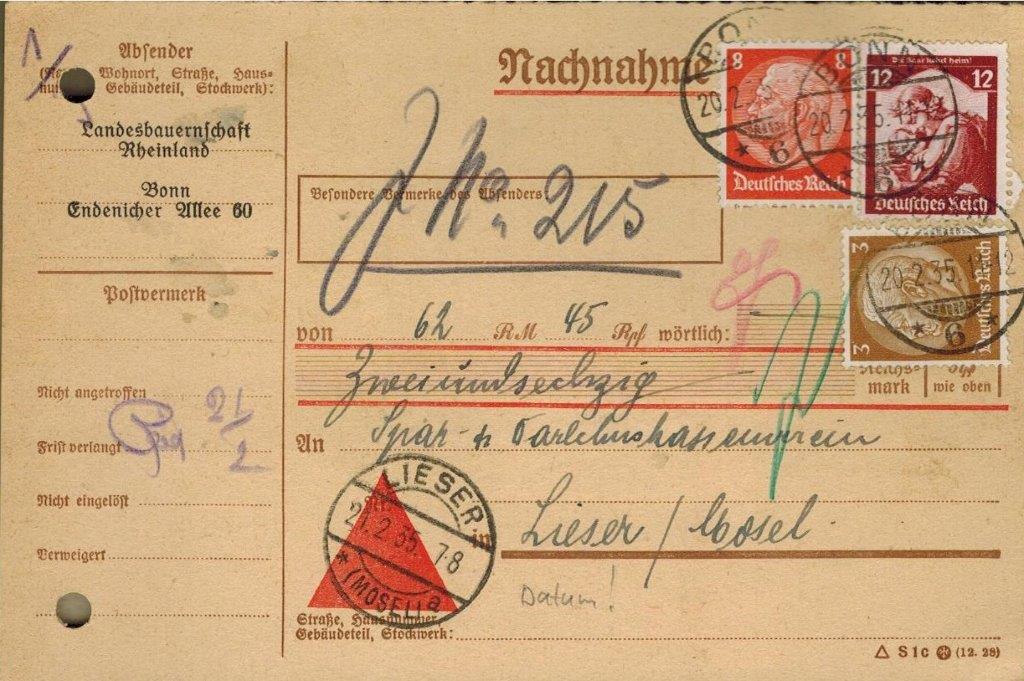 Absender
Wohnort, Straße, Haus-
Gebäudeteil, Stockwerk):
Landesbauernschaft
Rheinland
Bonn
Endenicher Allee 60
Postvermerk
Nicht angetroffen
Frist verlangt
21/2
Nicht eingelöst
Verweigert
Nachnahme
Besondere Vermerke des Absenders
J No. 215
von 62 RM 45 Rpf wörtlich:
Zweiundsechzig
Reichs-
mark
Rpf
wie oben
An Spar- & Darlehnskassenverein
in Lieser / Mosel
Datum!
Straße, Hausnummer,
Gebäudeteil, Stockwerk:
LIESER
21.2.35. 7-8
(MOSEL) a
8 8
Deutsches Reich
Die Saar kehrt heim!
12 12
Deutsches Reich
3 3
Deutsches Reich
BONN
20.2.35
6
BONN
20.2.35. 11-12
6
20.2.35. 11-12
6
S1c (12. 28)